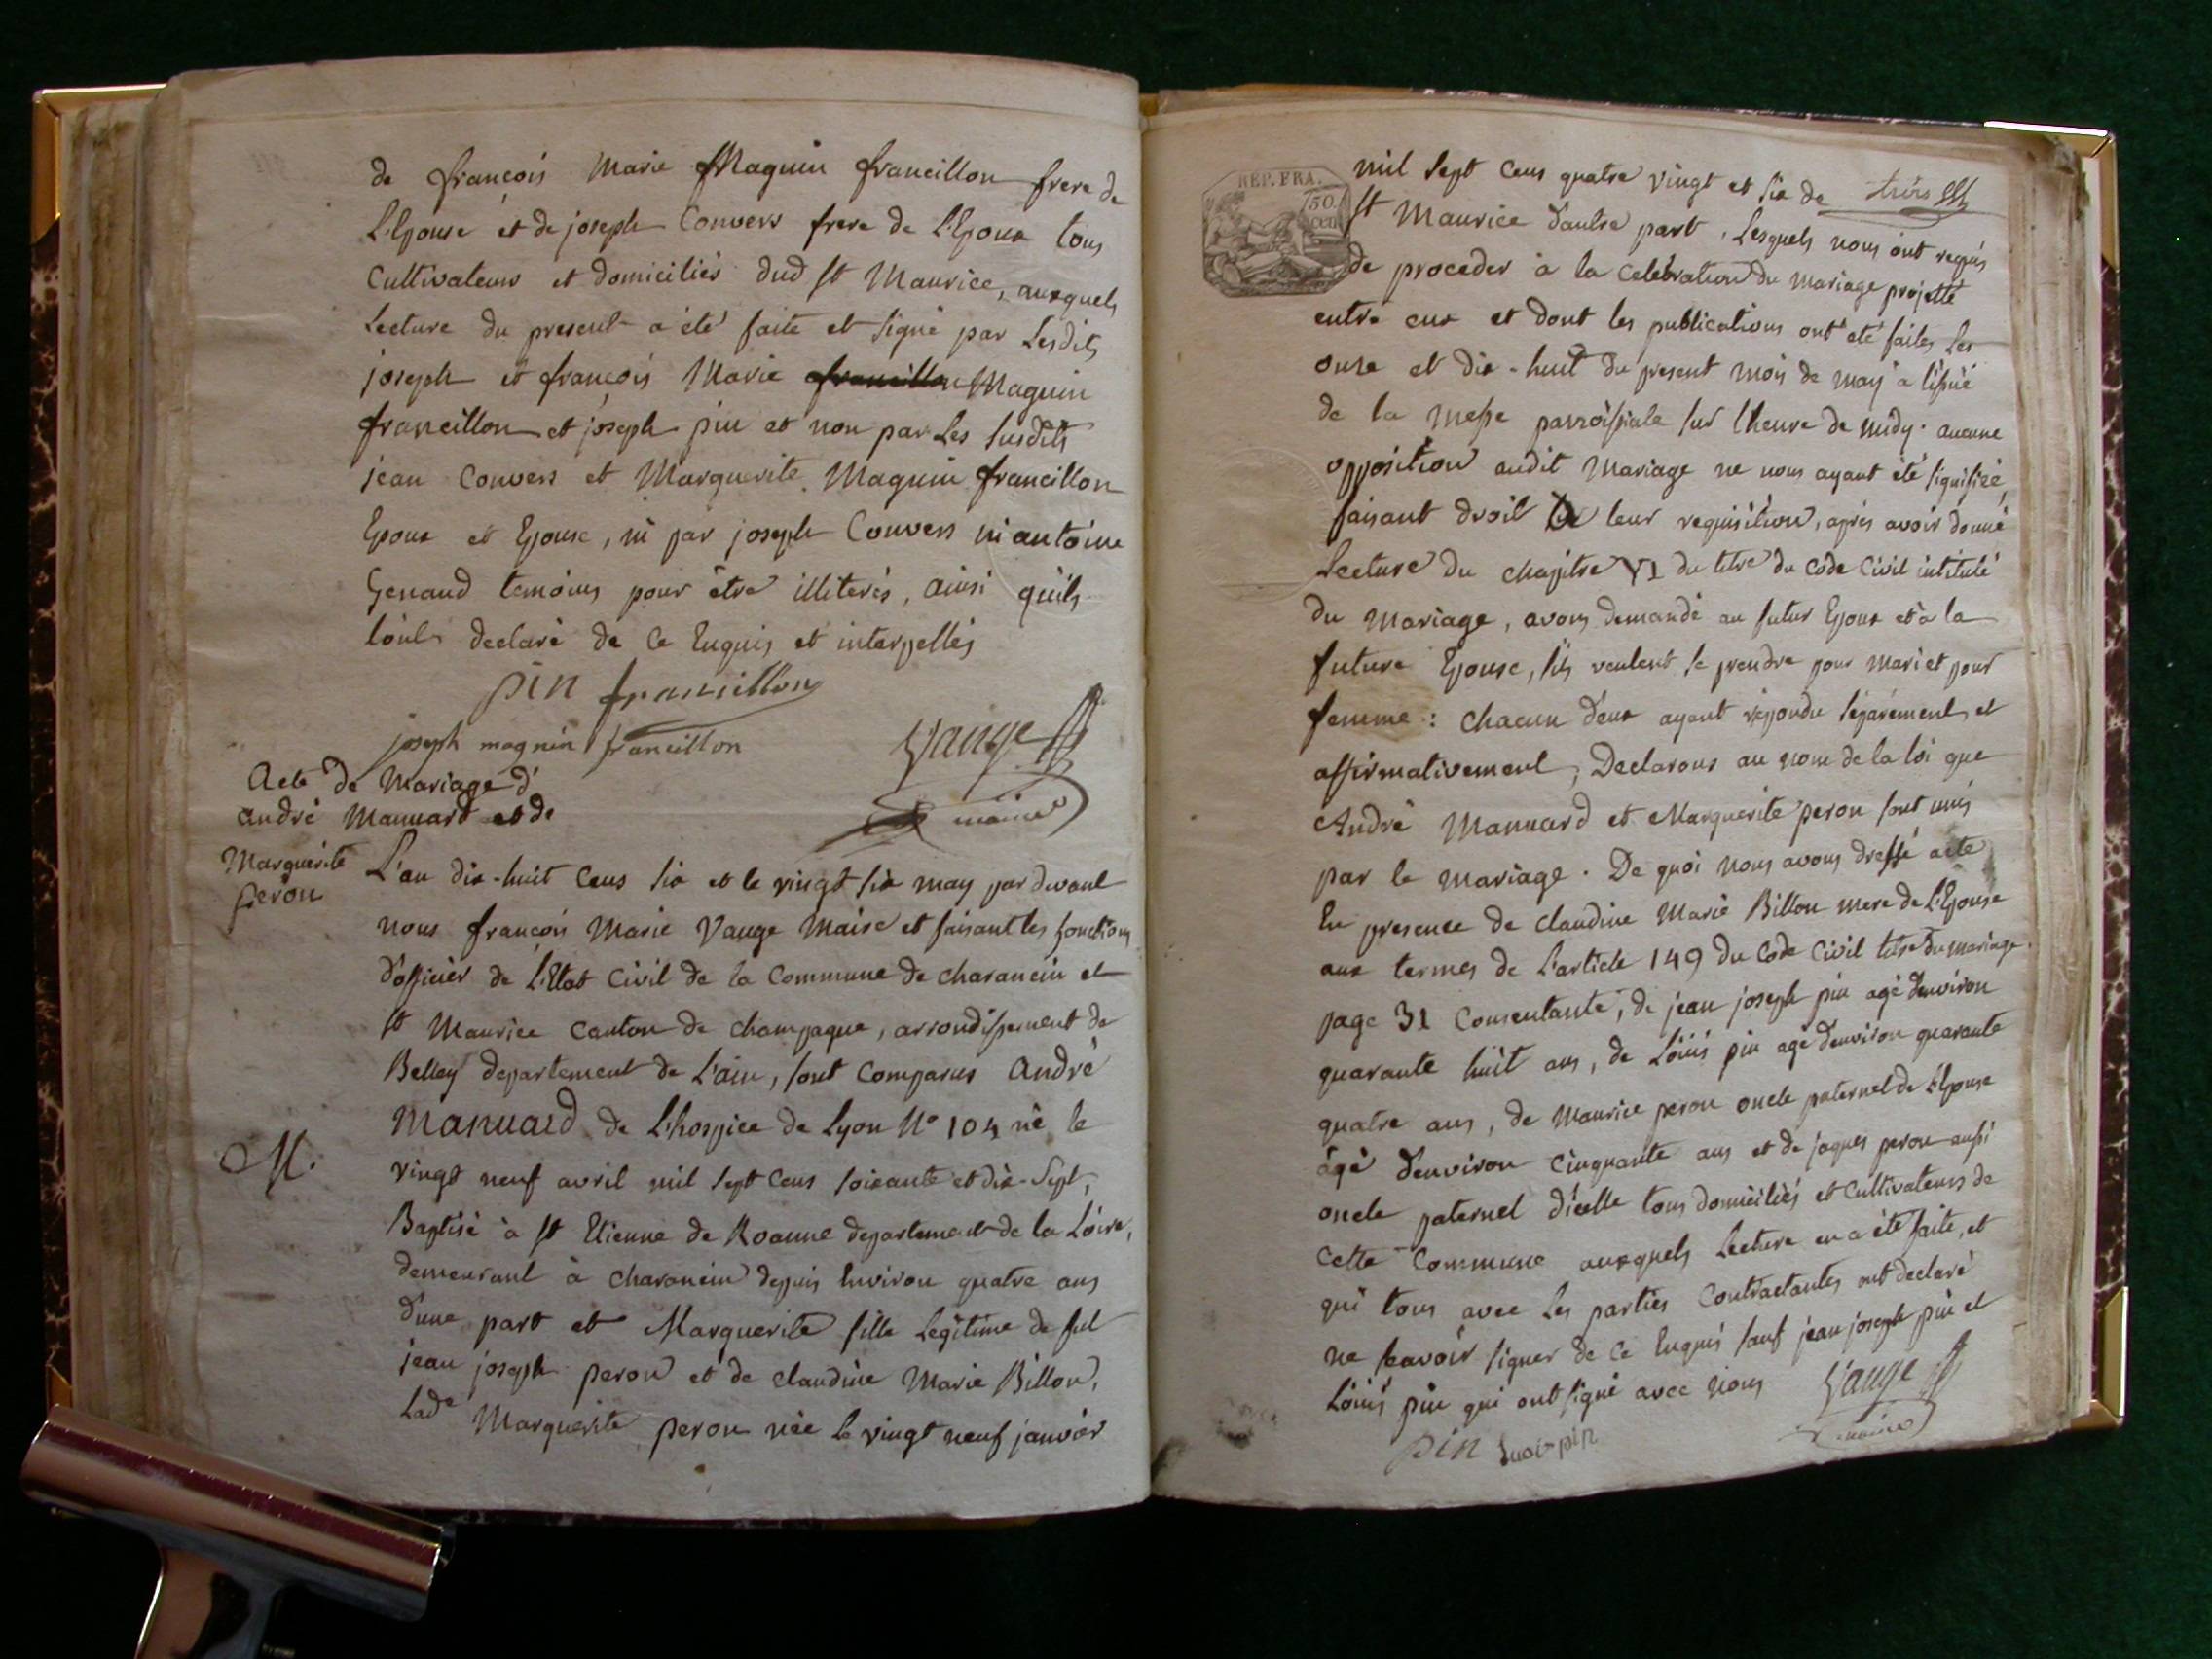 de françois Marie Magnin francillon frere de
L'Epouse et de joseph Convers frere de L'Epoux tous
Cultivateurs et domiciliés dud St Maurice, auxquels
Lecture du present a été faite et signé par Lesdits
joseph et françois Marie francillon Magnin
francillon et joseph pin et non par Les susdits
jean Convers et Marguerite Magnin francillon
Epoux et Epouse, ni par joseph Convers ni antoine
Genaud temoins pour être illiterés, ainsi qu'ils
l'ont declaré de ce Enquis et interpellés
pin francillon
joseph magnin francillon
Vauge
maire
Acte de Mariage d'
andré Manuard et de
Marguerite
peron
L'an dix-huit Cens six et le vingt six may par devant
nous françois Marie Vauge Maire et faisant les fonctions
d'officier de L'Etat Civil de la Commune de charancin et
St Maurice Canton de champagne, arrondissement de
Belley departement de L'ain, sont Comparus André
Manuard de L'hospice de Lyon No 104 né le
M.
vingt neuf avril mil sept Cens soixante et dix-Sept,
Baptisé à St Etienne de Roanne departement de la Loire,
demeurant à charancin depuis Environ quatre ans
d'une part et Marguerite fille Legitime de fut
jean joseph peron et de claudine Marie Billon,
Lade Marguerite peron née le vingt neuf janvier
REP. FRA.
50.
CEN
mil sept Cens quatre vingt et six de
trois
St Maurice d'autre part, Lesquels nous ont requis
de proceder à la Celebration du Mariage projetté
entre eux et dont les publications ont été faites Les
onze et dix-huit du present mois de may a l'issüe
de la Messe parroissiale sur l'heure de midy. aucune
opposition audit Mariage ne nous ayant été signifiée,
faisant droit a leur requisition, après avoir donné
Lecture du chapitre VI du titre du Code Civil intitulé
du Mariage, avons demandé au futur Epoux et à la
future Epouse, s'ils veulent se prendre pour Mari et pour
femme : chacun d'eux ayant repondu séparément et
affirmativement, Declarons au nom de la loi que
André Manuard et Marguerite peron sont unis
par le mariage. De quoi nous avons dressé acte
En presence de claudine Marie Billon mere de L'Epouse
aux termes de L'article 149 du Code Civil titre du mariage
page 31 Consentante, de jean joseph pin agé d'environ
quarante huit ans, de Loüis pin agé d'environ quarante
quatre ans, de Maurice peron oncle paternel de L'Epouse
âgé d'environ cinquante ans et de jaques peron aussi
oncle paternel d'icelle tous domiciliés et Cultivateurs de
Cette Commune auxquels Lecture en a été faite, et
qui tous avec Les parties Contractantes ont declaré
ne sçavoir signer de ce Enquis sauf jean joseph pin et
Loüis pin qui ont signé avec nous
Vauge
maire
pin Luoi-pin